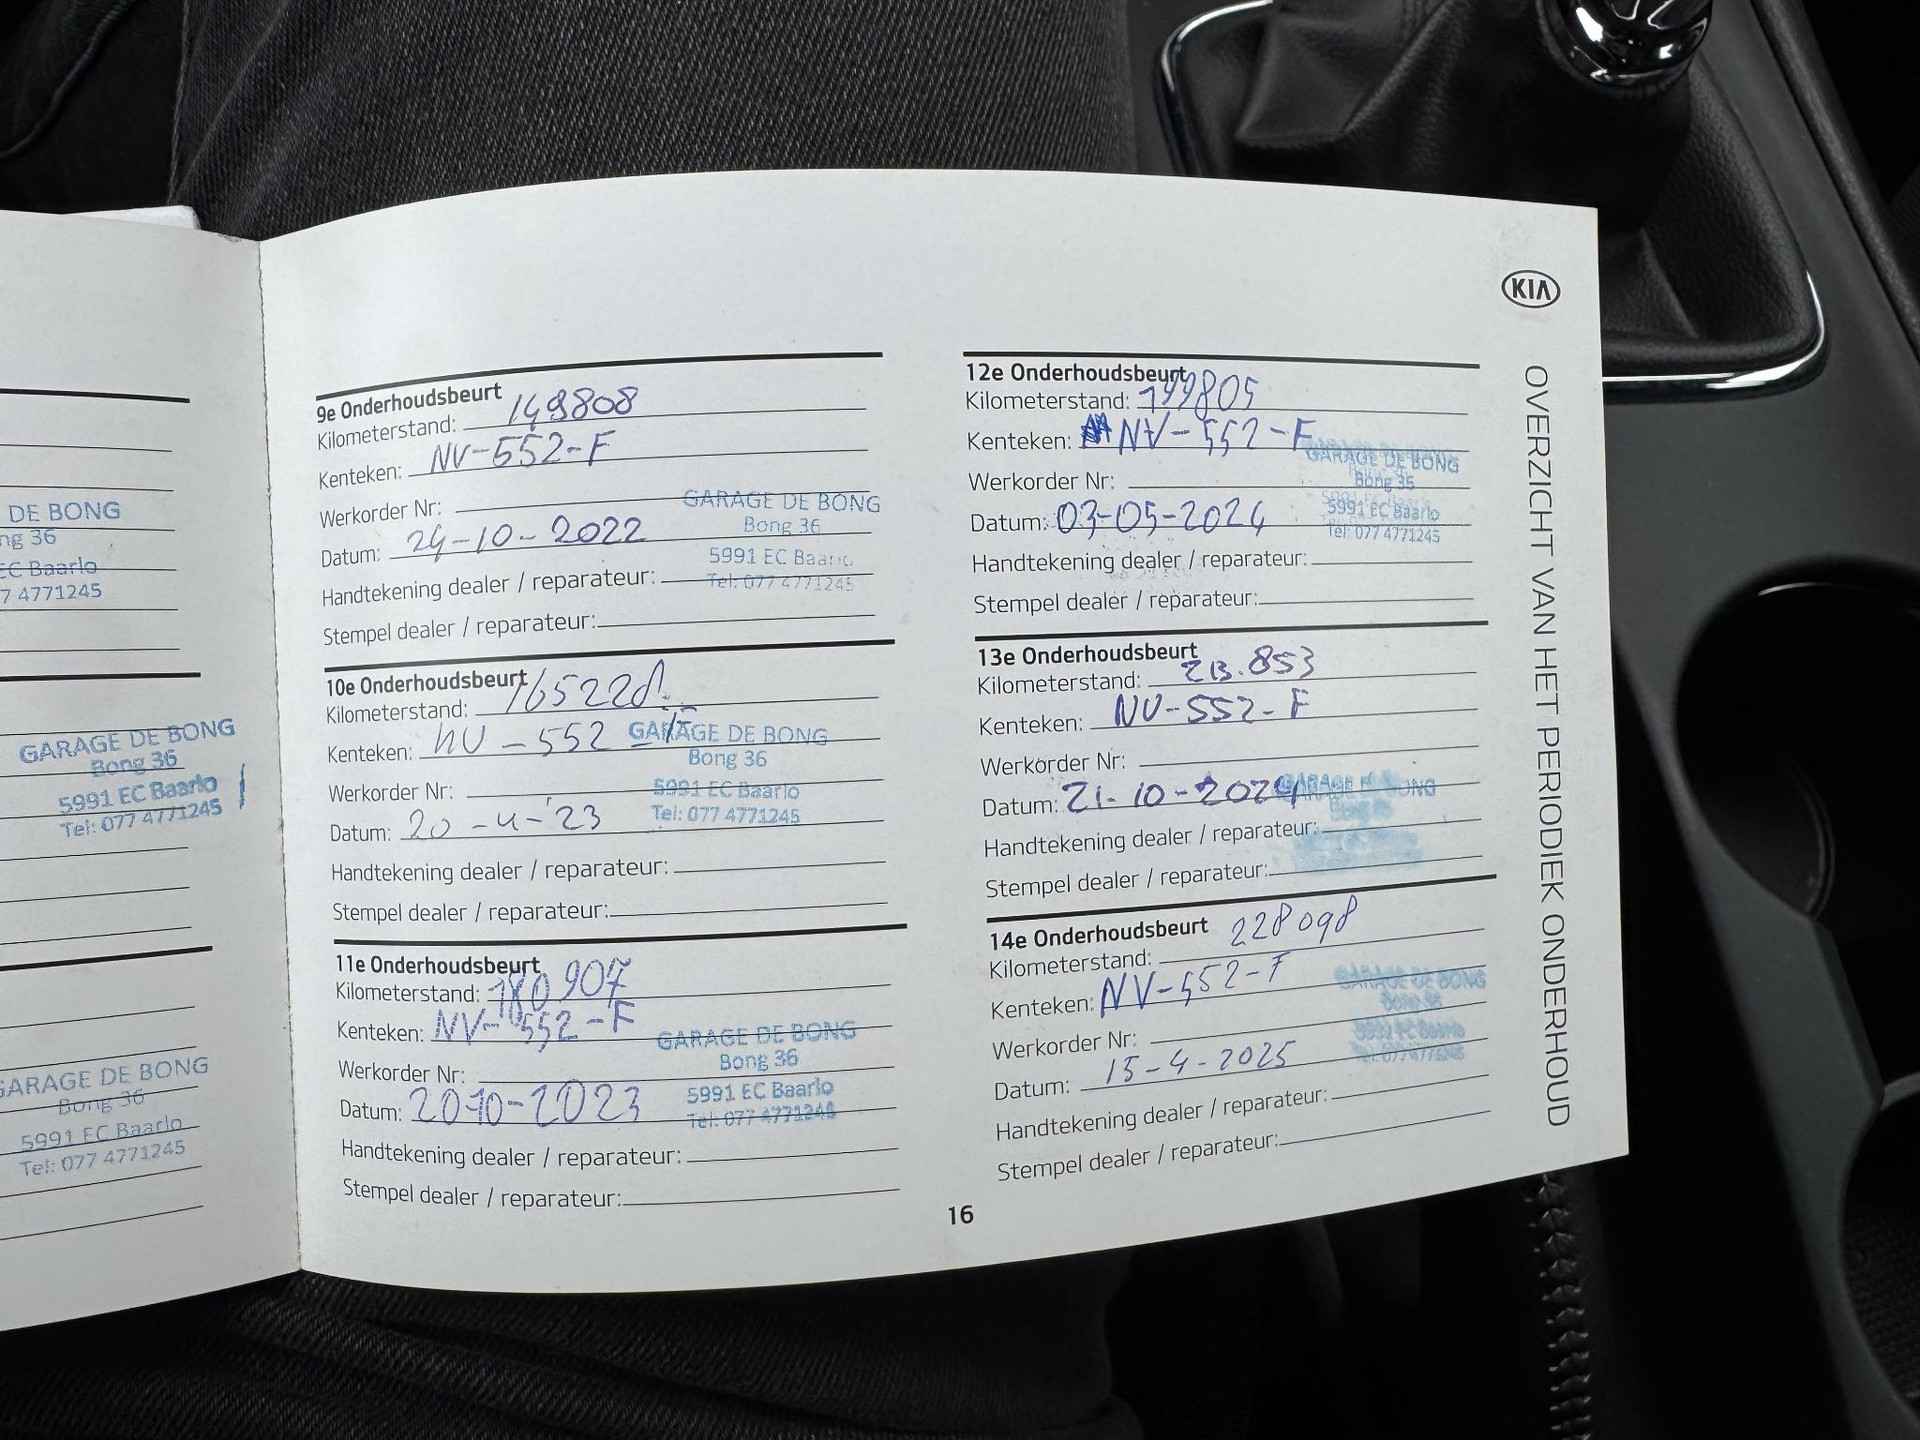 DE BONG
ng 36
EC Baarlo
7 4771245
GARAGE DE BONG
Bong 36
5991 EC Baarlo
Tel: 077 4771245
GARAGE DE BONG
Bong 36
5991 EC Baarlo
Tel: 077 4771245
9e Onderhoudsbeurt
Kilometerstand: 149808
Kenteken: NV-552-F
Werkorder Nr:
Datum: 24-10-2022
Handtekening dealer / reparateur:
Stempel dealer / reparateur:
GARAGE DE BONG
Bong 36
5991 EC Baarlo
Tel: 077 4771245
10e Onderhoudsbeurt
Kilometerstand: 165228
Kenteken: NV-552-F
Werkorder Nr:
Datum: 20-4-'23
Handtekening dealer / reparateur:
Stempel dealer / reparateur:
GARAGE DE BONG
Bong 36
5991 EC Baarlo
Tel: 077 4771245
11e Onderhoudsbeurt
Kilometerstand: 180907
Kenteken: NV-552-F
Werkorder Nr:
Datum: 20-10-2023
Handtekening dealer / reparateur:
Stempel dealer / reparateur:
GARAGE DE BONG
Bong 36
5991 EC Baarlo
Tel: 077 4771245
12e Onderhoudsbeurt
Kilometerstand: 199805
Kenteken: NV-552-F
Werkorder Nr:
Datum: 03-05-2024
Handtekening dealer / reparateur:
Stempel dealer / reparateur:
GARAGE DE BONG
Bong 36
5991 EC Baarlo
Tel: 077 4771245
13e Onderhoudsbeurt
Kilometerstand: 213.853
Kenteken: NV-552-F
Werkorder Nr:
Datum: 21-10-2024
Handtekening dealer / reparateur:
Stempel dealer / reparateur:
14e Onderhoudsbeurt
Kilometerstand: 228098
Kenteken: NV-552-F
Werkorder Nr:
Datum: 15-4-2025
Handtekening dealer / reparateur:
Stempel dealer / reparateur:
GARAGE DE BONG
Bong 36
5991 EC Baarlo
Tel: 077 4771245
16
KIA
OVERZICHT VAN HET PERIODIEK ONDERHOUD